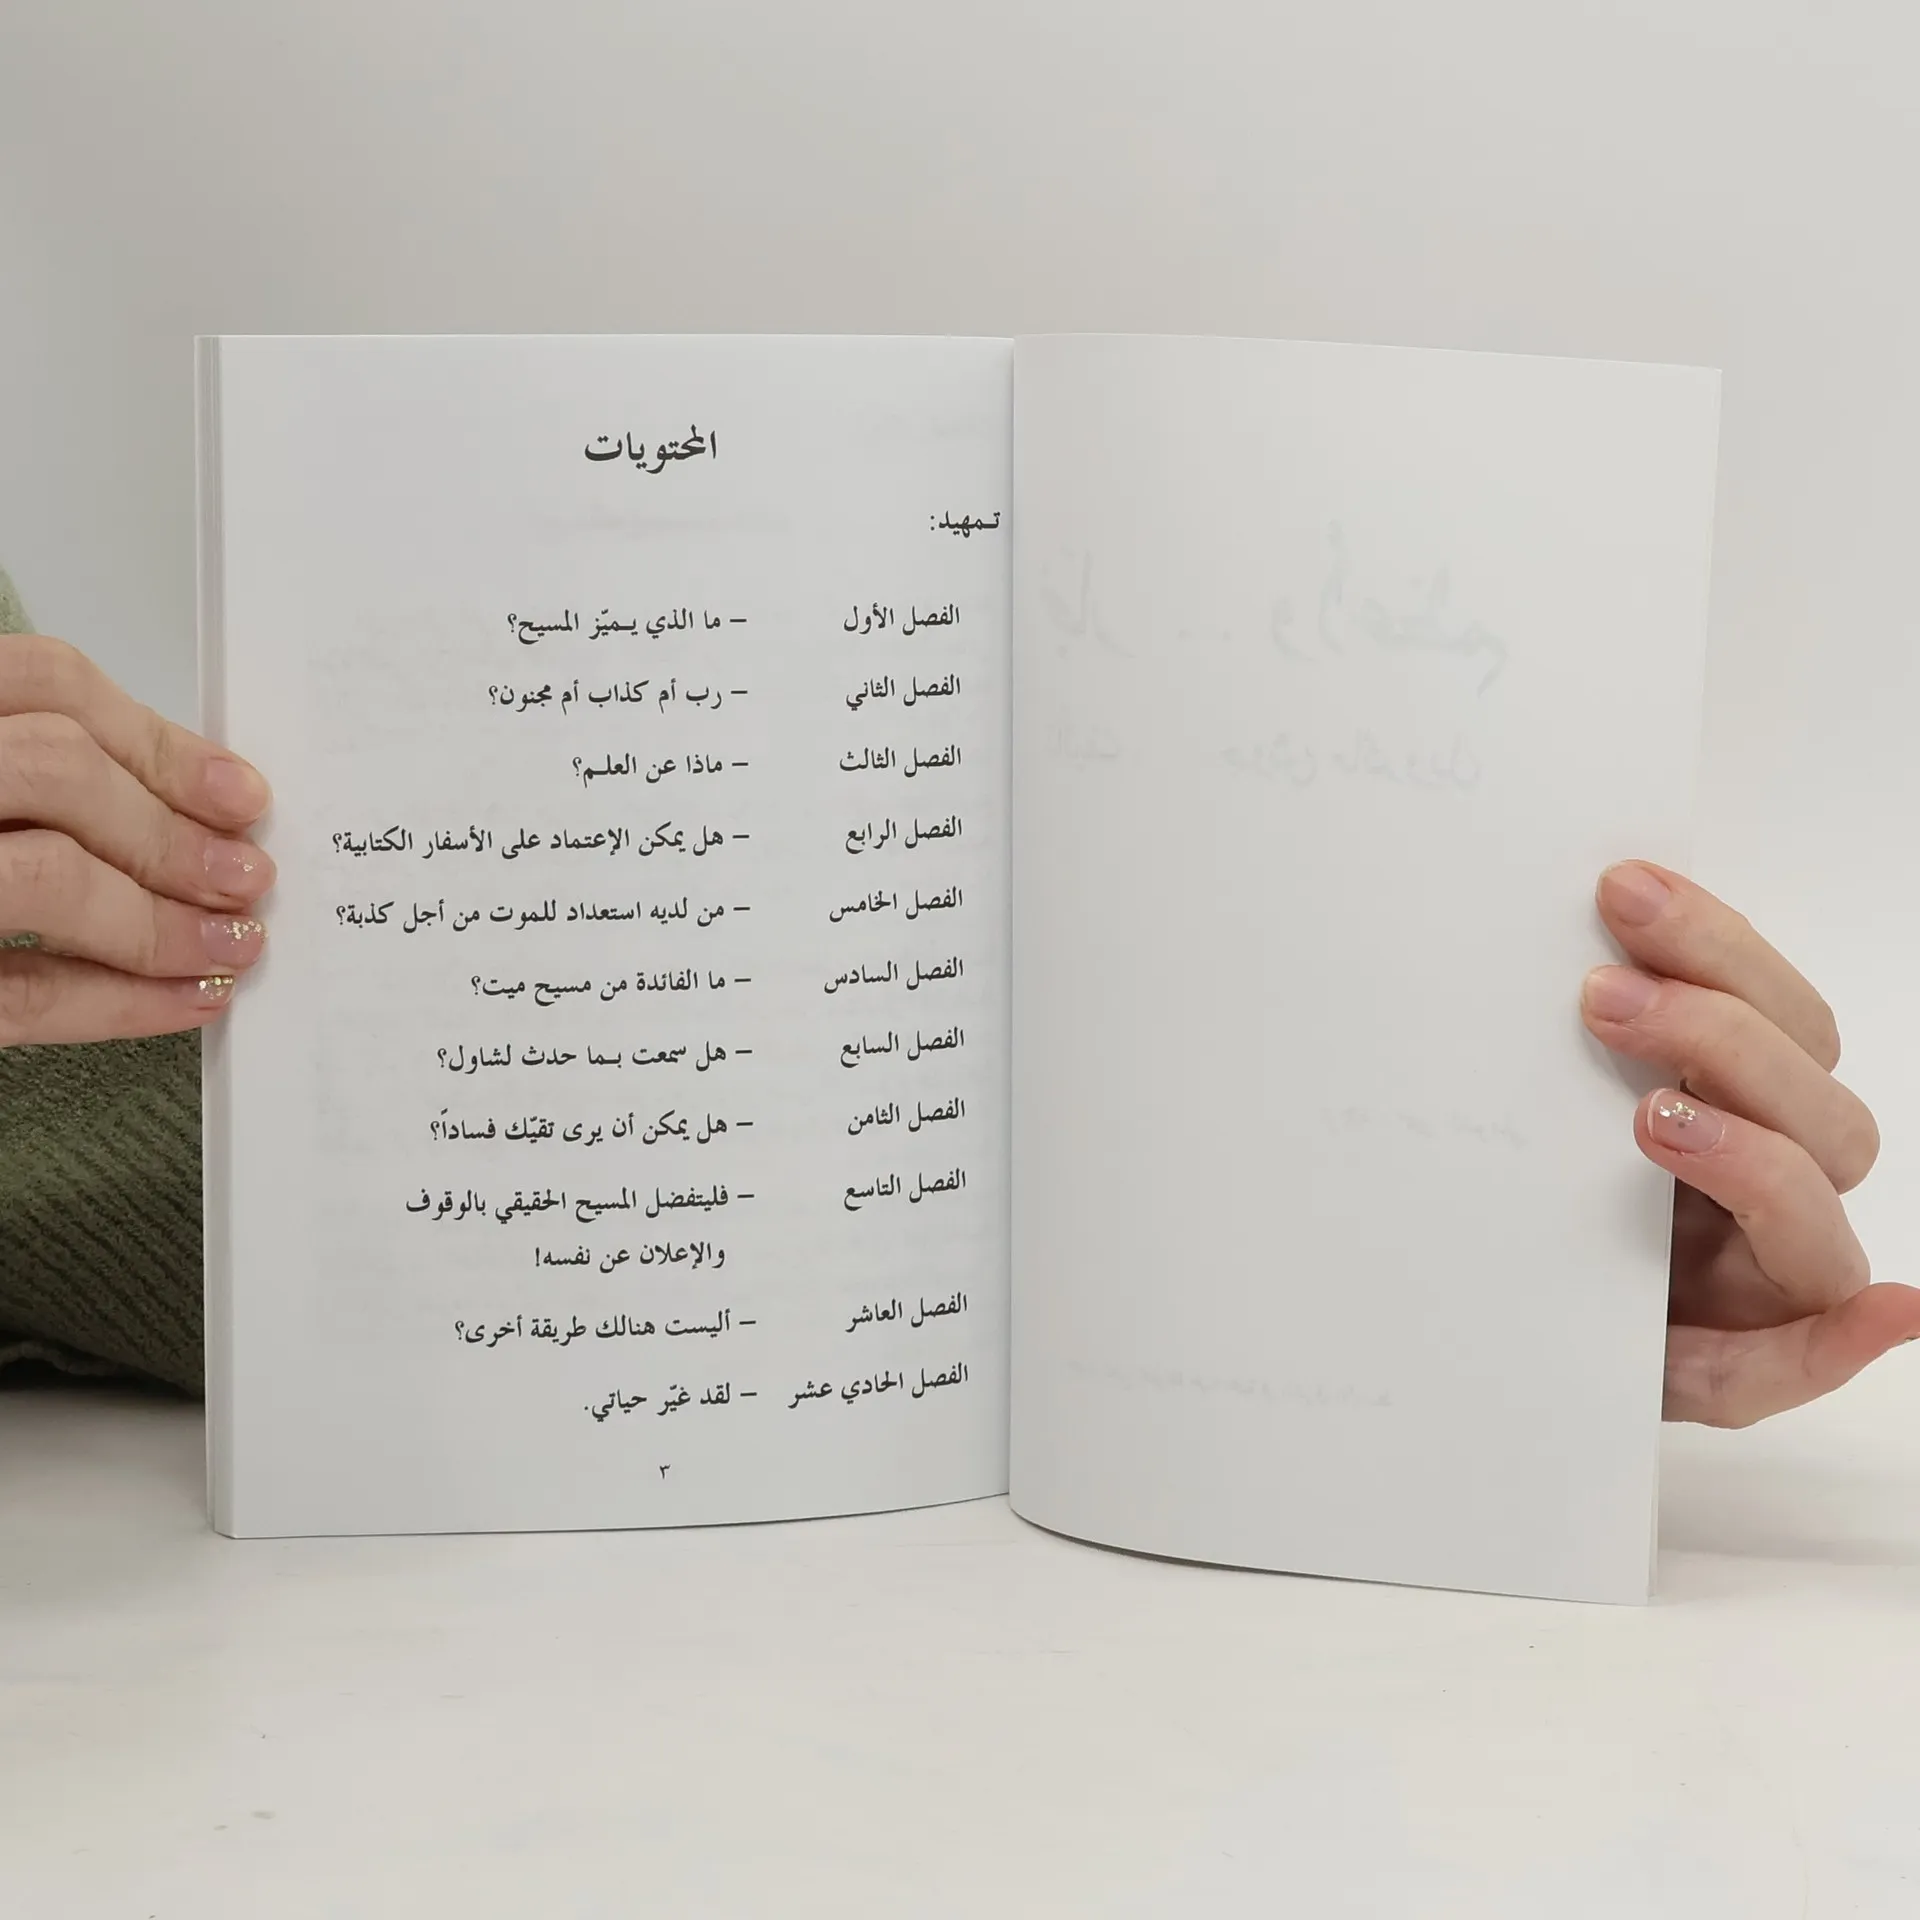 المحتويات
تـمهيد:
الفصل الأول – ما الذي يـميّز المسيح؟
الفصل الثاني – رب أم كذاب أم مجنون؟
الفصل الثالث – ماذا عن العلـم؟
الفصل الرابع – هل يمكن الإعتماد على الأسفار الكتابية؟
الفصل الخامس – من لديه استعداد للموت من أجل كذبة؟
الفصل السادس – ما الفائدة من مسيح ميت؟
الفصل السابع – هل سمعت بـما حدث لشاول؟
الفصل الثامن – هل يمكن أن يرى تقيّك فساداً؟
الفصل التاسع – فليتفضل المسيح الحقيقي بالوقوف
والإعلان عن نفسه!
الفصل العاشر – أليست هنالك طريقة أخرى؟
الفصل الحادي عشر – لقد غيّر حياتي.
٣